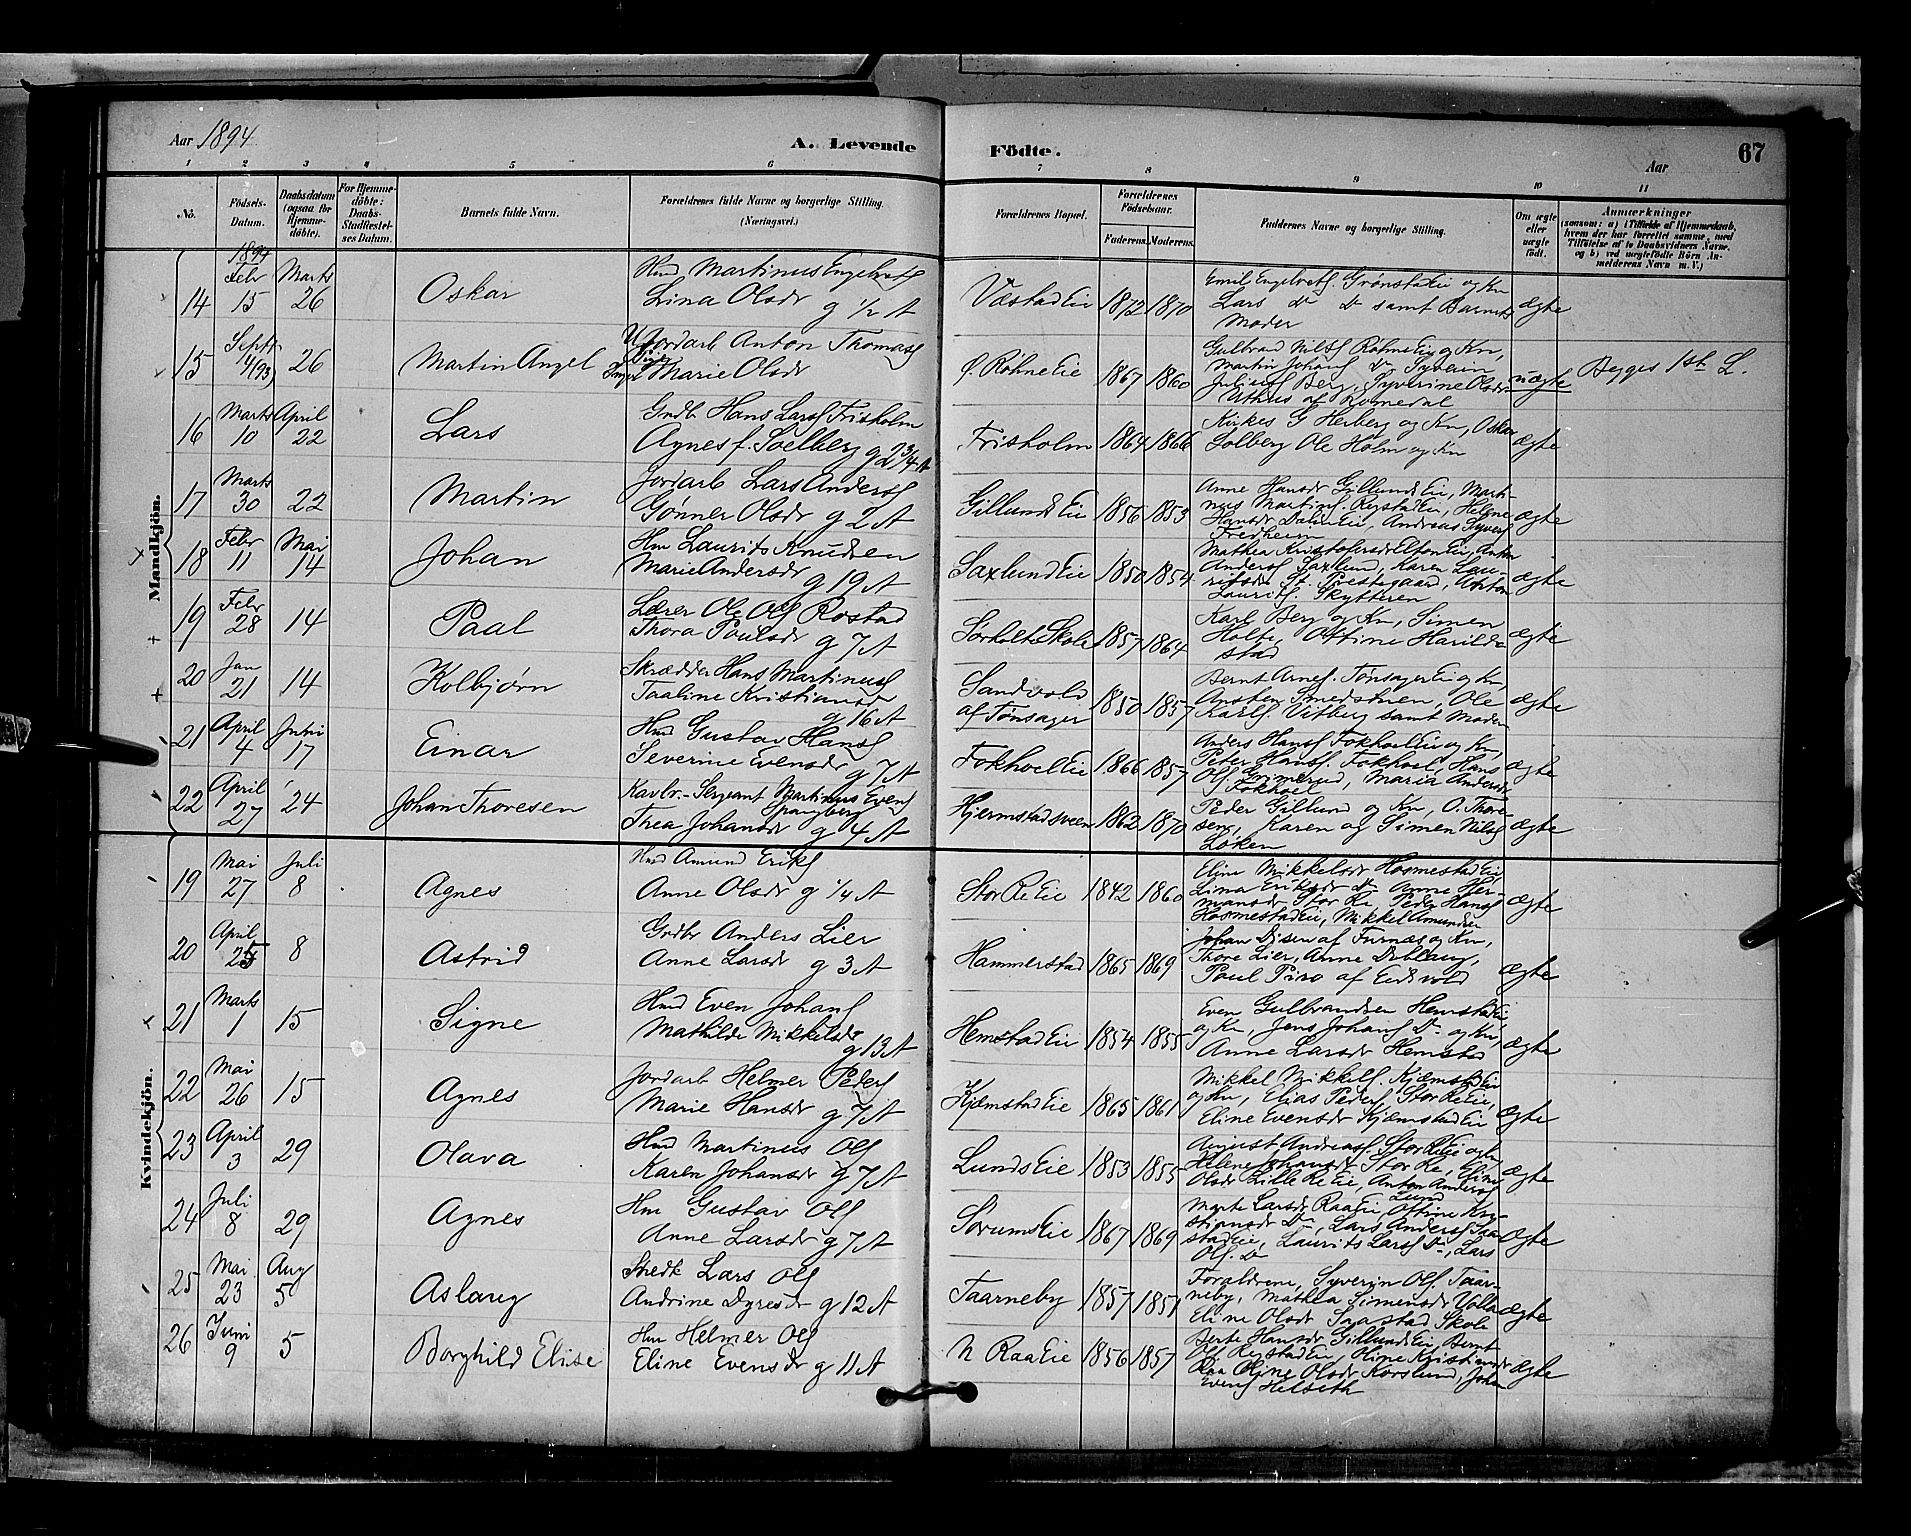 Aar 1894
A. Levende Födte.
67
Aar
1 2 3 4 5 6 7 8 9 10 11
No.
Födsels-Datum.
Daabsdatum (ogsaa for Hjemme-döbte).
For Hjemme-döbte: Daabs-Stadfæstel-ses Datum.
Barnets fulde Navn.
Forældrenes fulde Navne og borgerlige Stilling. (Næringsvei.)
Forældrenes Bopæl.
Forældrenes Födselsaar.
Faderens. Moderens.
Faddernes Navne og borgerlige Stilling.
Om ægte eller uægte födt.
Anmærkninger
(saasom: a) i Tilfælde af Hjemmedaab, hvem der har forrettet samme, med Tilföielse af to Daabsvidners Navne, og b) ved uægtefödte Börn Anmelderens Navn m. V.)
Mandkjön.
1894
14 Febr 15 Marts 26 Oskar
Hmd Martinus Engebrets
Lina Olsdr g 1/2 A
Væstad Eie 1872 1870
Emil Engebrets. Grønstad Eie og Kn
Lars Do Do samt Barnets
Moder
ægte
15 Septr 4/(93) 26 Martin Angel
Jordarb Anton Thomass
Pige Marie Olsdr
Ø. Røhne Eie 1867 1860
Gulbrand Nilss Røhne Eie og Kn,
Martin Johans Do Syverin
Julius Berg, Syverine Olsdr
Uthus af Romedal
uægte
Begges 1ste L.
16 Marts 10 April 22 Lars
Grdbr Hans Larss Frisholm
Agnes f. Soelberg g 2 3/4 A
Frisholm 1864 1866
Kirkes G Herberg og Kn, Oskar
Solberg Ole Holm og Kn
ægte
17 Marts 30 22 Martin
Jordarb Lars Anderss
Gønner Olsdr g 2 A
Gillund Eie 1856 1853
Anne Hansdr Gillunds Eie, Marti-
nus Martins. Rejstad Eie, Helene
Hansdr Dalen Eie, Andreas Syvers
Fredheim
ægte
18 Febr 11 Mai 14 Johan
Hm Laurits Knudsen
Marie Andersdr g 19 A
Saxlund Eie 1850 1854
Mathea Kristofersdr Elton Eie, Anton
Anders Saxlund, Karen Lau-
ritsdr St. Prestegaard, Anton
Laurits. Skytteren
ægte
19 Febr 28 14 Paal
Lærer Ole Ols Rostad
Thora Paulsdr g 7 A
Sørholte Skole 1857 1864
Karl Berg og Kn, Simen
Holte, Oftine Harilds-
stad
ægte
20 Jan 21 14 Kolbjørn
Skrædder Hans Martinuss
Taaline Kristiansdr g 16 A
Sandvold
af Tønsager 1850 1857
Bernt Arnes. Tønsager Eie og Kn,
Ansten Smedstuen, Ole
Karls. Vitberg samt Moderen
ægte
21 April 4 Juni 17 Einar
Hmd Gustav Hanss
Severine Evensdr g 7 A
Fokhoel Eie 1866 1857
Anders Hanss Fokhoel Eie og Kn,
Peter Hanss. Fokhoel, Hans
Ols. Grimerud, Maria Andersdr
Fokhoel
ægte
22 April 27 24 Johan Thoresen
Kavlr-Sergeant Martinus Evens
Spangberg
Thea Johansdr g 4 A
Hjermstadsveen 1862 1870
Peder Gillund og Kn, O. Thore-
sen, Karen og Simen Nilss
Løken
ægte
Kvindekjön.
19 Mai 27 Juli 8 Agnes
Hmd Amund Eriks
Anne Olsdr g 1/4 A
Stor Re Eie 1842 1860
Eline Mikkelsdr Hosmestad Eie,
Lina Eriksdr Do Anne Her-
mansdr Stor Re, Peder Hanss
Hosmestad Eie, Mikkel Amundsen
ægte
20 April 25 8 Astrid
Grdbr Anders Lier
Anne Larsdr g 3 A
Hammerstad 1865 1869
Johan Disen af Furnæs og Kn,
Thore Lier, Anne Deblaug,
Paul Piro af Eidsvold
ægte
21 Marts 1 15 Signe
Hmd Even Johans
Mathilde Mikkelsdr g 13 A
Hemstad Eie 1854 1855
Even Gulbrandsen Hemstad Eie
og Kn, Jens Johans Do og Kn,
Anne Larsdr Hemstad
ægte
22 Mai 26 15 Agnes
Jordarb Helmer Peders
Marie Hansdr g 7 A
Kjemstad Eie 1865 1861
Mikkel Mikkels. Kjemstad Eie
og Kn, Elias Peders Stor Re Eie,
Eline Evensdr Kjemstad Eie
ægte
23 April 3 29 Olava
Hmd Martinus Ols
Karen Johansdr g 7 A
Lunds Eie 1853 1855
August Andreass. Stor Re Eie og Kn,
Helene Johansdr Stor Re, Eline
Olsdr Lille Re Eie, Anton Anders
Lund
ægte
24 Juli 8 29 Agnes
Hm Gustav Ols
Anne Larsdr g 7 A
Sørums Eie 1867 1869
Marte Larsdr Raa Eie, Oftine Kri-
stiansdr Do, Lars Anders Saa-
stad Eie, Laurits Lars Do, Lars
Ols. Do
ægte
25 Mai 23 Aug 5 Aslaug
Snedk Lars Ols
Andrine Dyresdr g 12 A
Taarneby 1857 1851
Forældrene, Syverin Ols. Taar-
neby, Mathea Simensdr Volla
Eline Olsdr Saastad Skole
ægte
26 Juni 9 5 Borghild Elise
Hm Helmer Ols
Eline Evensdr g 11 A
N Raa Eie 1856 1857
Berte Hansdr Gillunds Eie, Bernt
Ols Rejstad Eie, Oline Kristiansdr
Raa Oline Olsdr Korslund, Johan
Evens Helseth
ægte